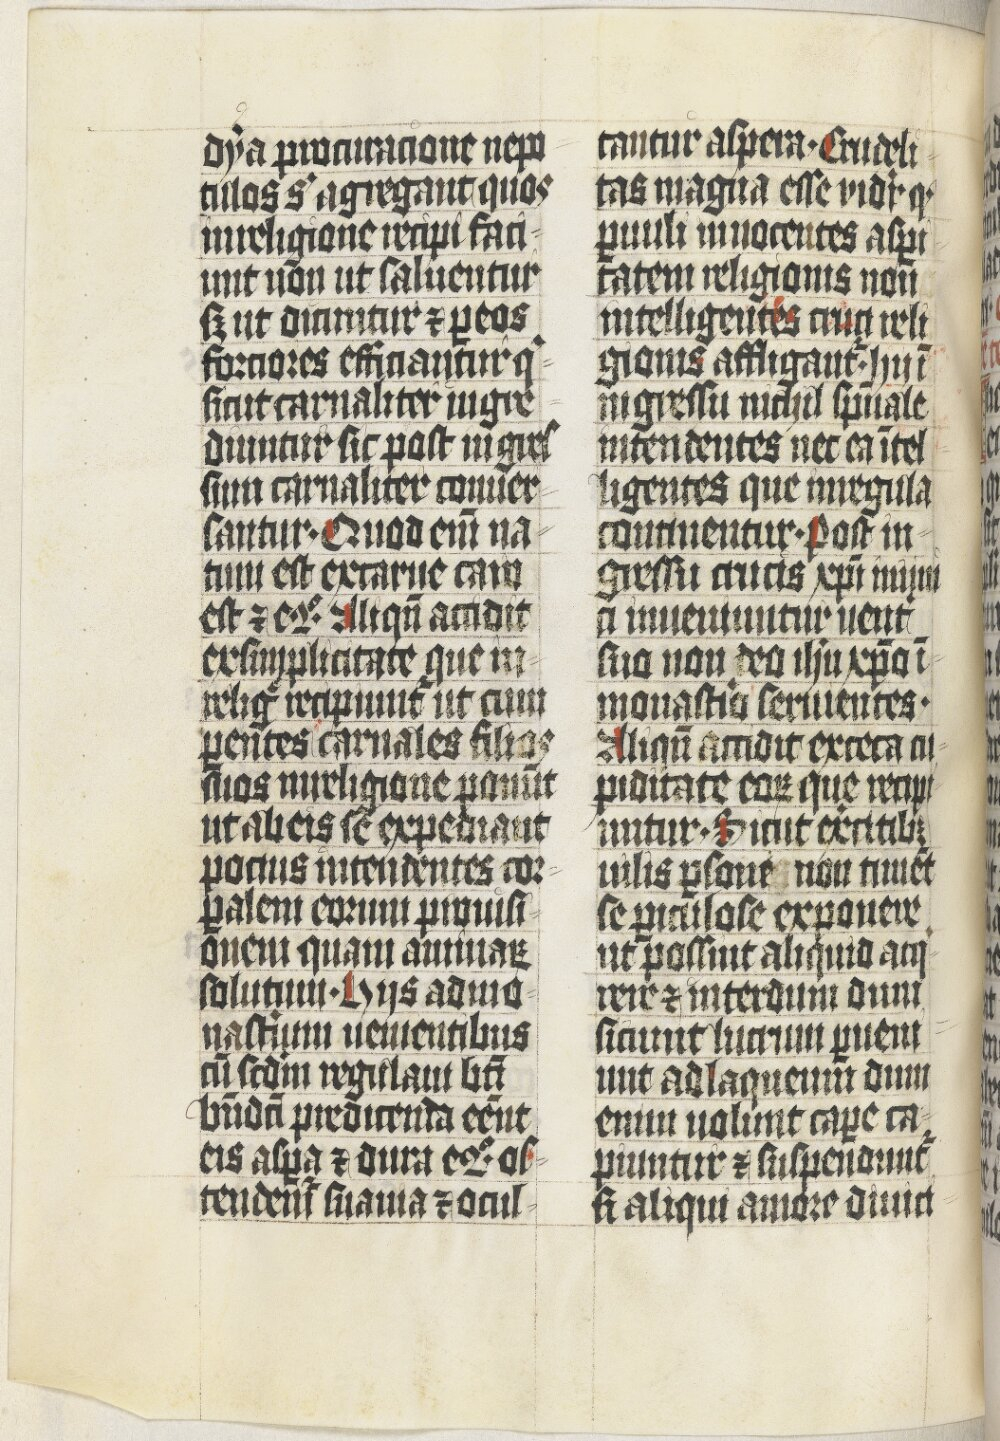 dya procuracione nepo
tulos s' agregant quos
inreligione recipi faci-
unt non ut saluentur
sz ut ditintur ⁊ peos
forciores efficiantur q'
sicut carnaliter ingre
diuntur sic post ingres
sum carnaliter conuer-
santur· Quod eni na-
tum est excarne caro
est ⁊ c̄· Aliqn̄ accidit
exsimplicitate que in-
reliḡ recipiunt̄ ut cum
pen̄tes carnales filios
suos inreligione ponūt
ut abeis se expediant
pocius intendentes cor-
palem eorum prouisi
onem quam animaꝝ
solutum· Hijs admo-
nastium uenientibus
cū scdm regulam bti
bn̄dcī predicenda eēnt
eis aspa ⁊ dura ⁊c̄· os-
tendent̄ suauia ⁊ ocul-
tantur aspera· Crudeli-
tas magna esse vidr̄ q'
puuli innocentes aspi
tatem religionis non
intelligentes cruci reli
gionis affligant̄· hij ī
ingressu nichil spūale
intendentes nec ea ītel
ligentes que inregula
continentur· Post in-
gressu crucis xp̄i inimi
ci inueniuntur uent̄
suo non deo ihu xp̄o ī
monastio seruientes·
Aliqn̄ accidit exceca cu-
piditate eoꝝ que recipi
untur· Sicut exc̄itibꝫ
uilis psone non timēt
se piculose exponere
ut possint aliquid acq'
rere ⁊ interdum dum
siciunt lucrum pueni
unt adlaqueum dum
enim uolunt cape ca-
piuntur ⁊ suspendunt̄
sic aliqui amore diuici